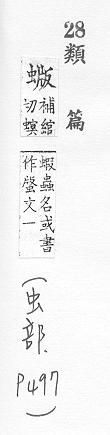 28類篇
蝂
補綰
切蝜
蝂蟲名或書
作螌文一
(虫部. P497)